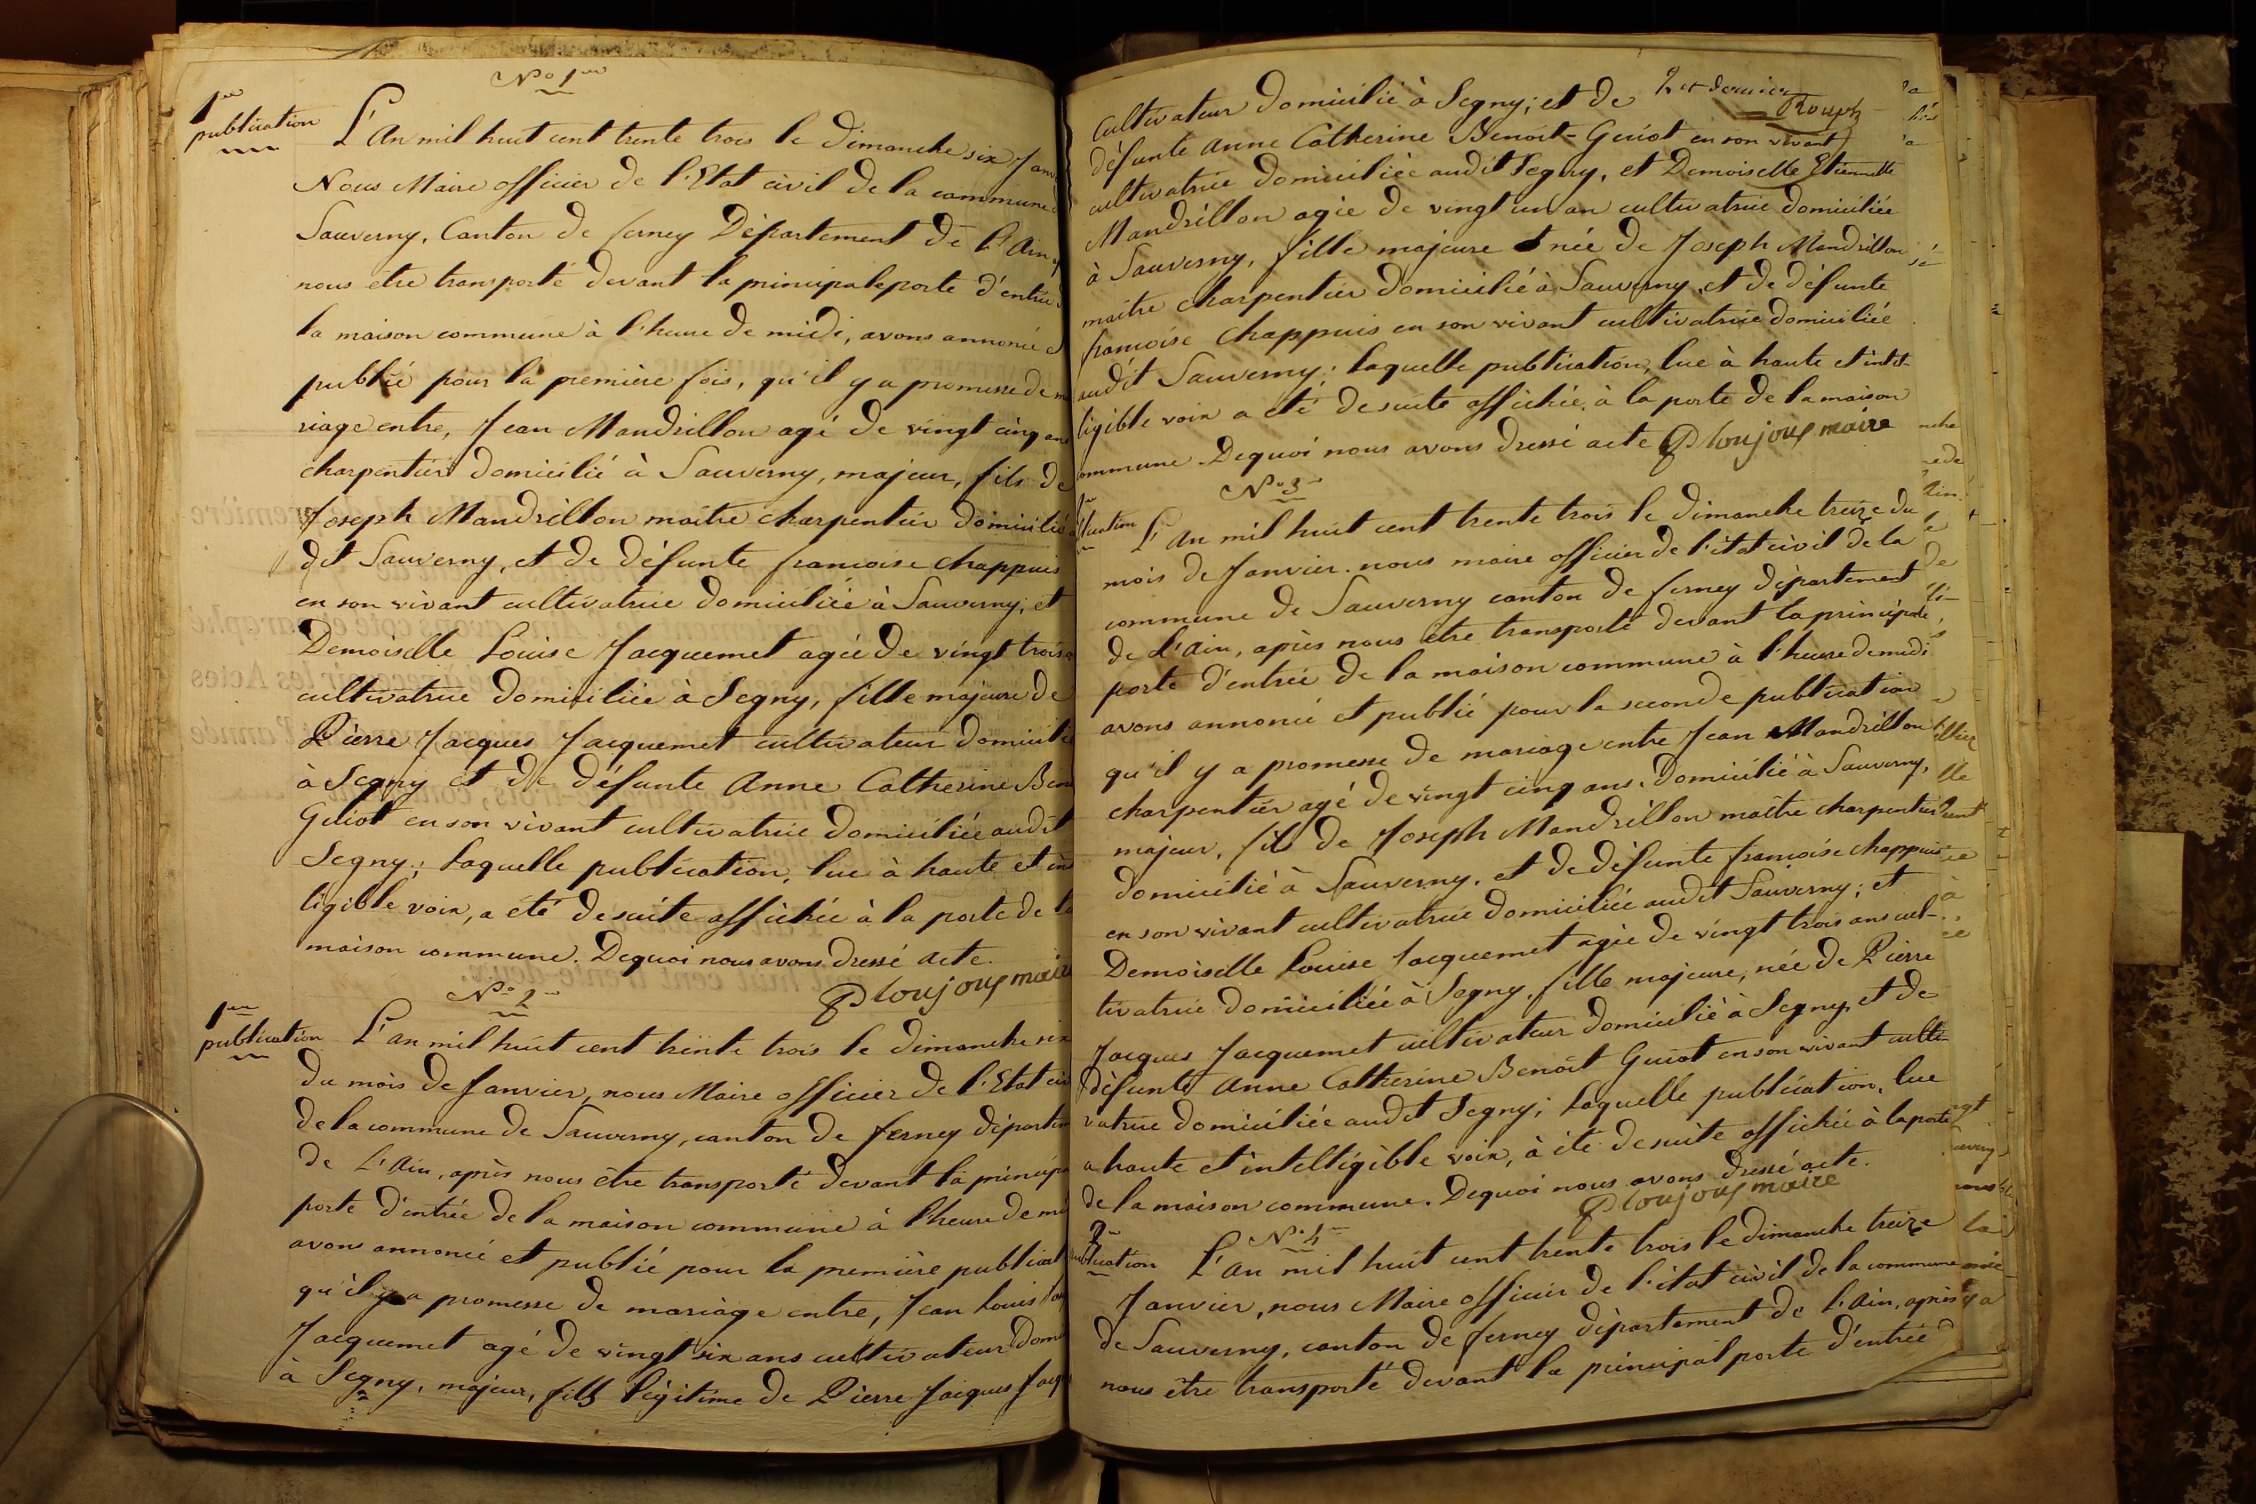 No 1er
1ere
publication
L'An mil huit cent trente trois le dimanche six Janv
Nous Maire officier de l'Etat civil de la commune
Sauverny, Canton de ferney Département de l'Ain
nous être transporté devant la principale porte d'entrée
la maison commune à l'heure de midi, avons annoncé et
publié pour la première fois, qu'il y a promesse de m
riage entre, Jean Mandrillon agé de vingt cinq ans
charpentier domicilié à Sauverny, majeur, fils de
Joseph Mandrillon maître charpentier domicilié
dit Sauverny, et de défunte francoise chappuis
en son vivant cultivatrice domiciliée à Sauverny; et
Demoiselle Louise Jacquemet agée de vingt trois
cultivatrice domiciliée à Segny, fille majeure de
Pierre Jacques Jacquemet cultivateur domicilié
à Segny et de défunte Anne Catherine Ben
Guiot en son vivant cultivatrice domiciliée audit
Segny; laquelle publication, lue à haute et in
ligible voix, a été de suite affichée à la porte de la
maison commune. Dequoi nous avons dressé acte.
P loujoux maire
No 2
1ere
publication
L'an mil huit cent trente trois le dimanche six
du mois de Janvier, nous Maire officier de l'Etat civ
de la commune de Sauverny, canton de ferney départem
de L'Ain, après nous être transporté devant la princip
porte d'entrée de la maison commune à l'heure de mi
avons annoncé et publié pour la première publicat
qu'il y a promesse de mariage entre, Jean Louis
Jacquemet agé de vingt six ans cultivateur dom
à Segny, majeur, fils légitime de Pierre Jacques Jacq
2 et dernier
Rouph
cultivateur domicilié à Segny; et de
défunte Anne Catherine Benoit-Guiot en son vivant
cultivatrice domiciliée audit Segny, et Demoiselle Etiennette
Mandrillon agée de vingt un an cultivatrice domiciliée
à Sauverny, fille majeure et née de Joseph Mandrillon
maître charpentier domicilié à Sauverny et de défunte
francoise Chappuis en son vivant cultivatrice domiciliée
audit Sauverny; laquelle publication, lue à haute et intel-
ligible voix a été de suite affichée à la porte de la maison
ommune. Dequoi nous avons dressé acte P loujoux maire
No 3
lication
L'an mil huit cent trente trois le dimanche treize du
mois de Janvier. nous maire officier de l'état civil de la
commune de Sauverny canton de ferney département
de L'Ain, après nous être transporté devant la principale
porte d'entrée de la maison commune à l'heure de midi
avons annoncé et publié pour la seconde publication
qu'il y a promesse de mariage entre Jean Mandrillon
charpentier agé de vingt cinq ans, domicilié à Sauverny,
majeur, fils de Joseph Mandrillon maître charpentier
domicilié à Sauverny, et de défunte françoise chappuis
en son vivant cultivatrice domiciliée audit Sauverny; et
Demoiselle Louise Jacquemet agée de vingt trois ans cul-
tivatrice domiciliée à Segny, fille majeure, née de Pierre
Jacques Jacquemet cultivateur domicilié à Segny, et de
défunte Anne Catherine Benoit Guiot en son vivant culti-
vatrice domiciliée audit Segny; laquelle publication, lue
a haute et intelligible voix, à été de suite affichée à la porte
de la maison commune. Dequoi nous avons dressé acte.
P loujoux maire
No 4
2me
ublication
L'an mil huit cent trente trois le dimanche treize
Janvier, nous Maire officier de l'état civil de la commune
de Sauverny, canton de ferney département de l'Ain, après
nous être transporté devant la principal porte d'entrée